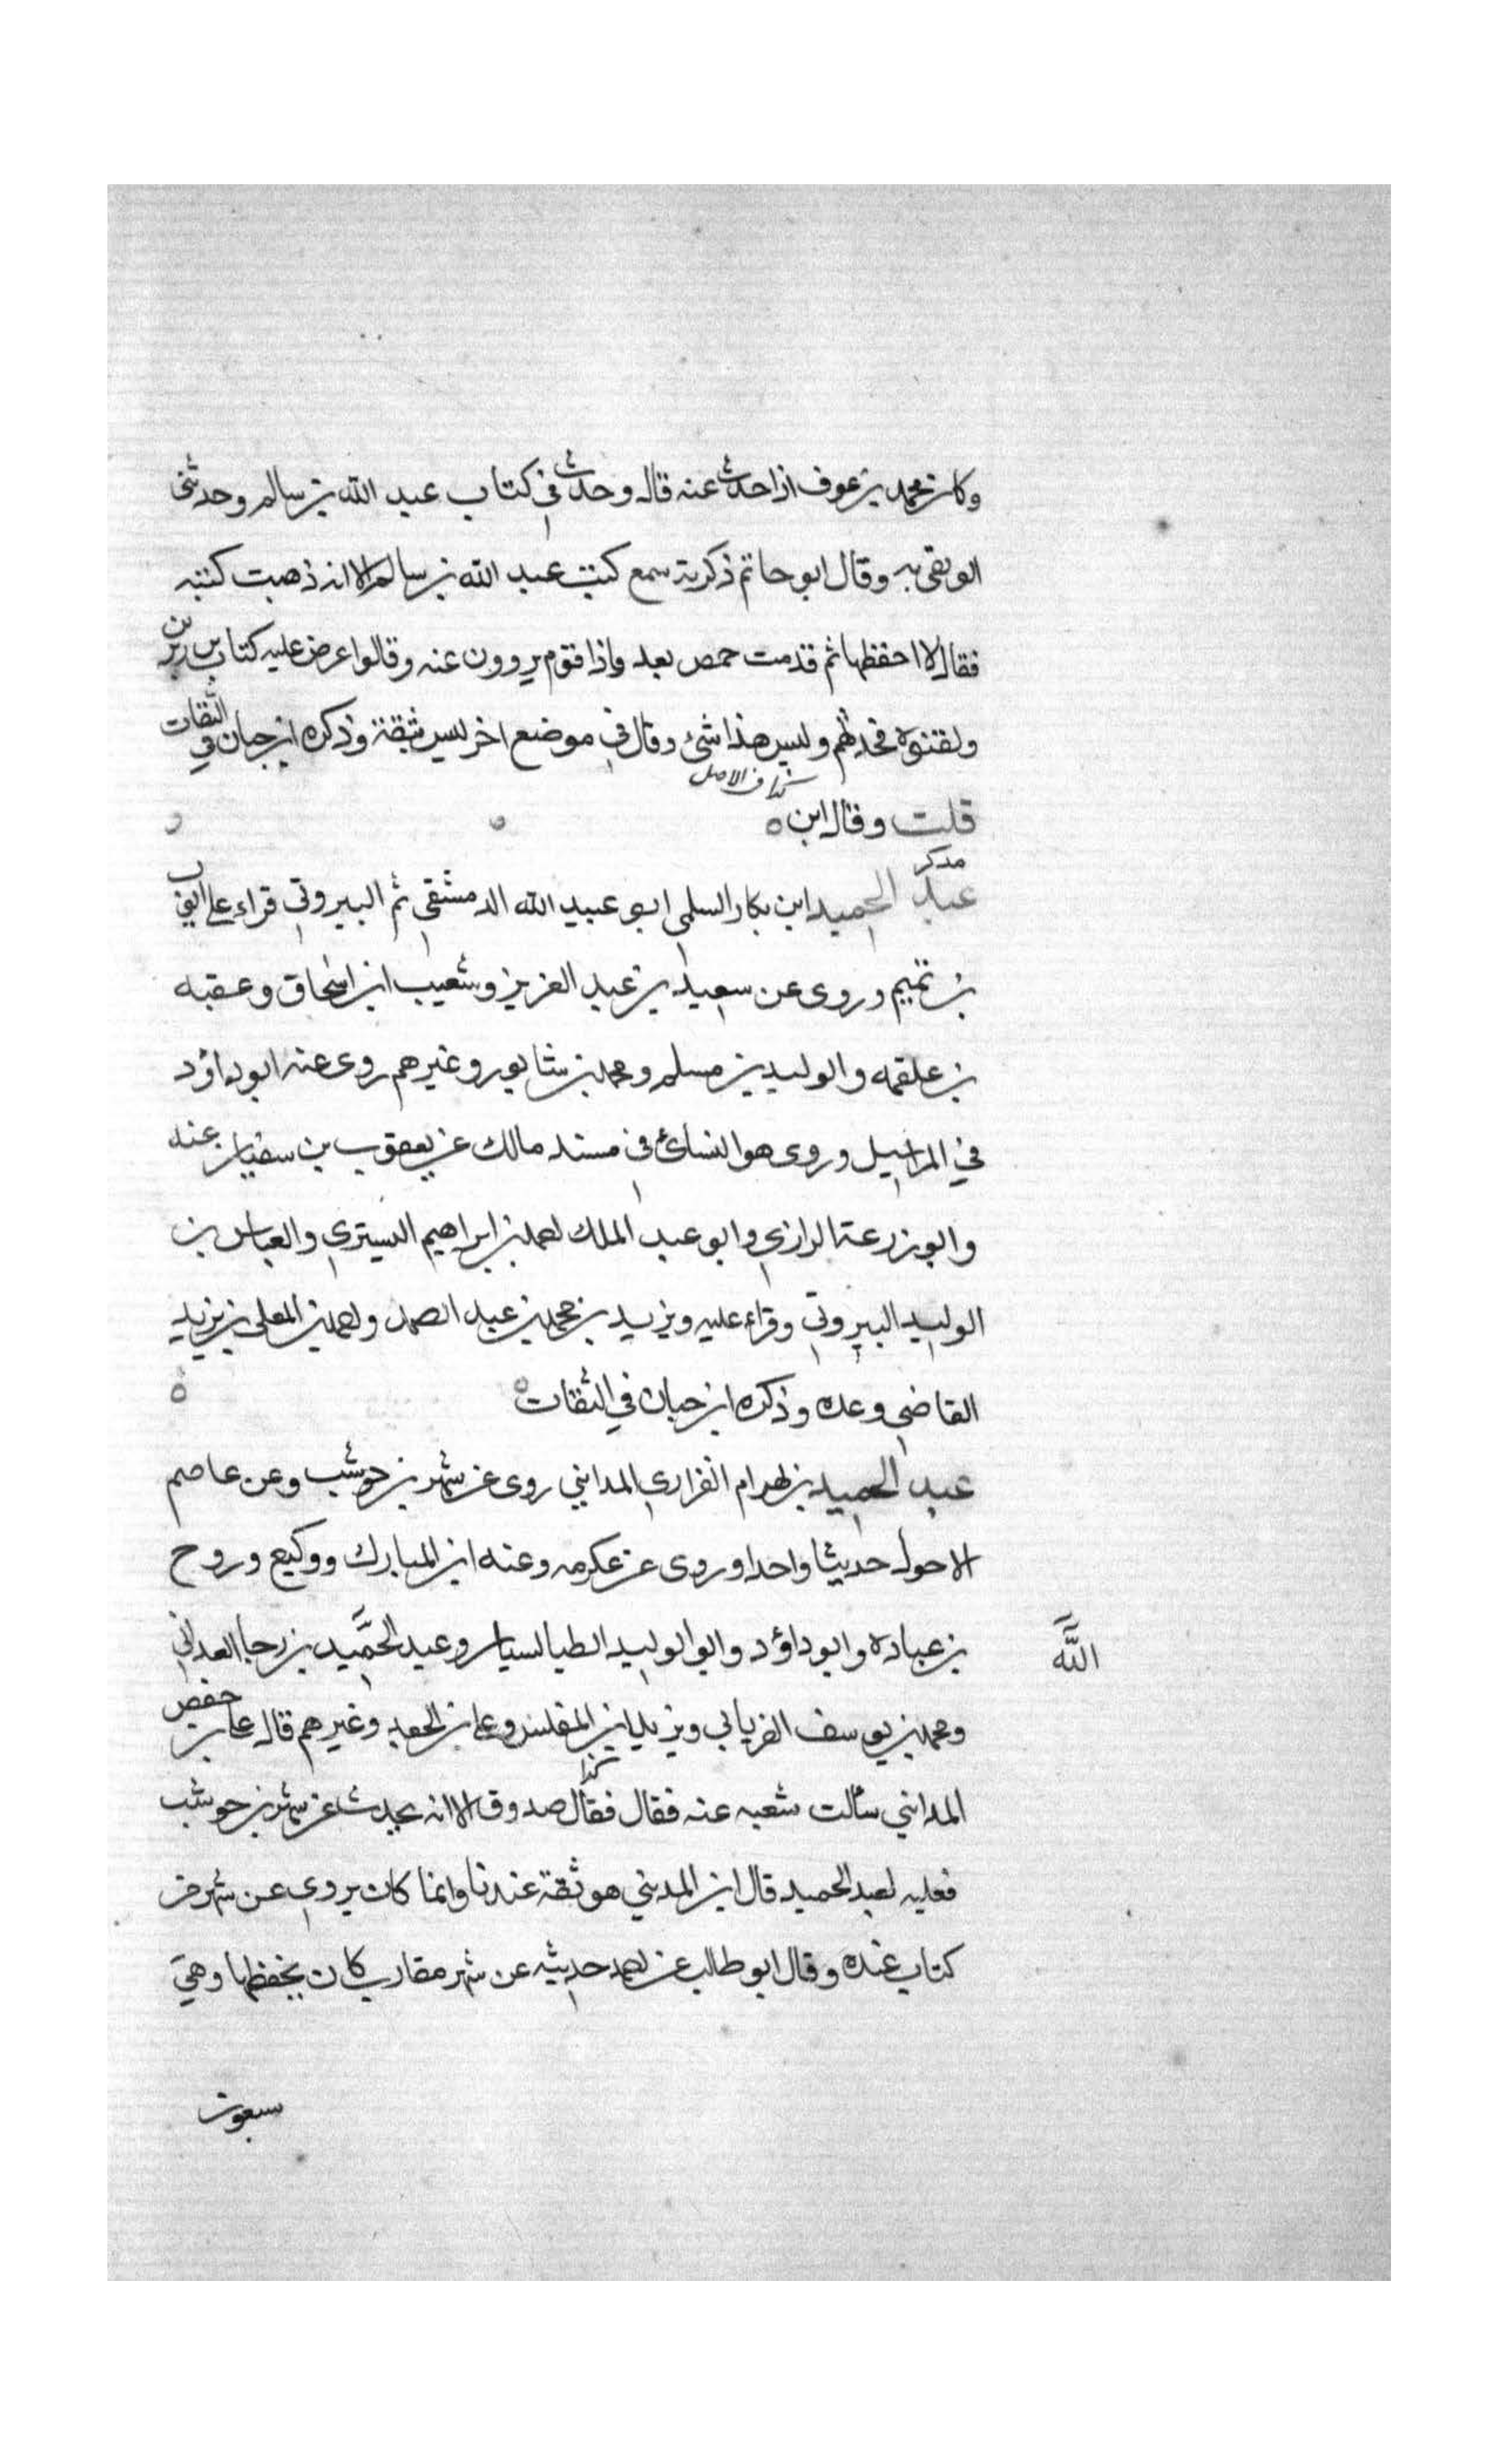 وكان محمد بن عوف اذا حدث عنه قال وحدث في كتاب عبد الله بن سالم وحدثني
ابو تقي به وقال ابو حاتم ذكر بة سمع كتب عبد الله بن سالم الا انه ذهبت كتبه
فقال لا احفظها ثم قدمت حمص بعد فاذا قوم يروون عنه وقالوا عرض عليه كتاب بن زبريق
ولقنوه فحدثهم وليس هذا شئ وقال في موضع اخر ليس بثقة وذكره ابن حبان في الثقات
كذا في الاصل
قلت وقال ابن ه
مد كن
عبد الحميد ابن بكار السلمي ابو عبيد الله الدمشقي ثم البيروتي قراء على ايوب
بن تميم وروى عن سعيد بن عبد العزيز وشعيب ابن اسحاق وعقبه
بن علقمه والوليد بن مسلم ومحمد بن شابور وغيرهم روى عنه ابو داؤد
في المراسيل وروى هو النسائ في مسند مالك عن يعقوب بن سفيان عنه
وابو زرعة الرازي وابو عبد الملك احمد بن ابراهيم البستري والعباس بن
الوليد البيروتي وقراء عليه ويزيد بن محمد بن عبد الصمد واحمد بن المعلى بن يزيد
القاضي وعده وذكره ابن حبان في الثقات ه
عبد الحميد بن بهرام الفزاري المدايني روى عن شهر بن حوشب وعن عاصم
الاحول حديثا واحدا وروى عن عكرمه وعنه ابن المبارك ووكيع وروح
بن عباده وابو داؤد وابو الوليد الطيالسيان وعبد الحميد بن رجا الغداني
الله
ومحمد بن يوسف الفريابي ويزيد ابن المفلس وعلي بن الجعد وغيرهم قال علي بن حفص
كذا
المدايني سألت شعبه عنه فقال فقال صدوق الا انه يحدث عن شهر بن حوشب
فعليه لعبد الحميد قال ابن المديني هو ثقة عندنا وانما كان يروي عن شهر من
كتاب عنده وقال ابو طالب عن احمد حديثه عن شهر مقارب كان يحفظها وهي
سبعون